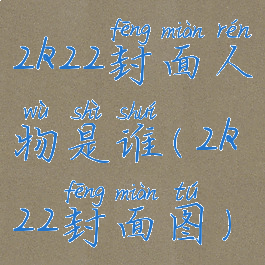 fēng miàn rén
2k22封面人
wù shì shuí
物是谁(2k
fēng miàn tú
22封面图)